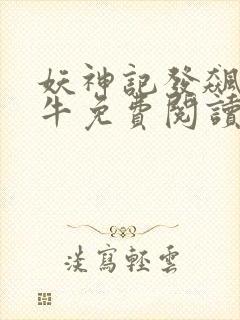 妖神記發飆
牛免費閱讀
淡寫輕雲